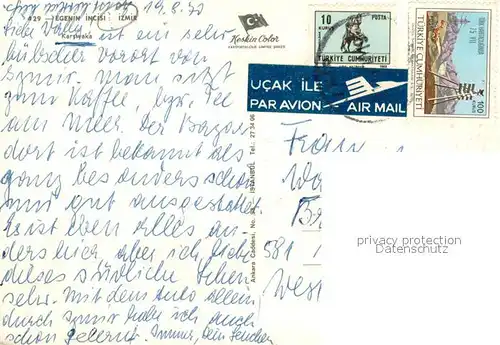 19.8.73
429 EGENIN INCISI: IZMIR
Karşıyaka
ist ein sehr
hübscher Vorort von
Izmir. Man sitzt
zum Kaffee, bzw. Tee
am Meer. Der Bazar
dort ist bekannt als
ganz besonders schön
und gut ausgestattet
Es ist eben alles an-
ders hier aber ich liebe
dieses südliche Leben
sehr. Mit dem Auto allein
durch Izmir habe ich auch
schon gelernt. Immer, Dein
Keskin Color
Ankara Caddesi, No. İSTANBUL Tel.: 27 34 06
10
POSTA
TÜRKİYE CUMHURİYETİ
TÜRKİYE CUMHURİYETİ
100
UÇAK İLE
PAR AVION AIR MAIL
Frau
581
West
privacy protection
Datenschutz